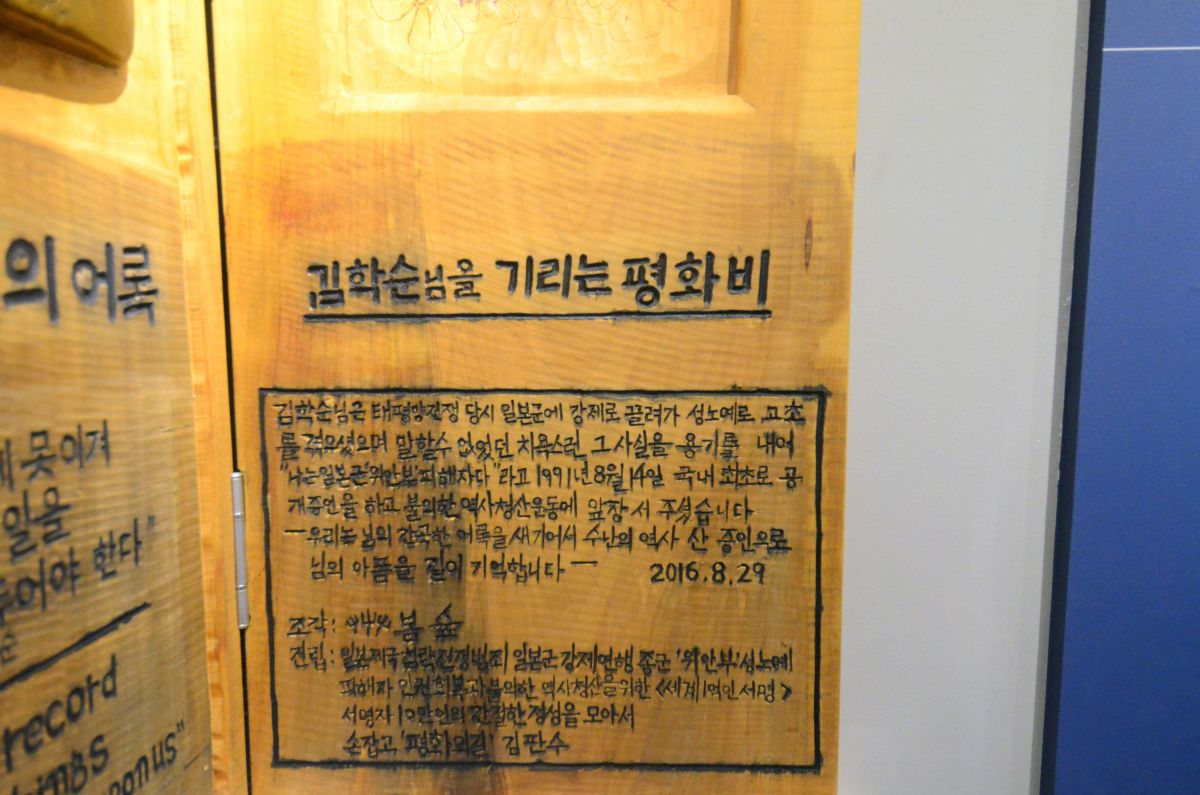 의 어록
못이겨
일을
두어야 한다"
record
things
upon us"
김학순님을 기리는 평화비
김학순님은 태평양전쟁 당시 일본군에 강제로 끌려가 성노예로 고초
를 겪으셨으며 말할수 없었던 치욕스런 그 사실을 용기를 내어
"나는 일본군'위안부'피해자다"라고 1991년 8월 14일 국내 최초로 공
개증언을 하고 불의한 역사청산운동에 앞장 서 주셨습니다
─우리는 님의 간곡한 어록을 새기어서 수난의 역사 산 증인으로
님의 아픔을 깊이 기억합니다─ 2016.8.29
조각: 봄 숲
건립: 일본제국 침략전쟁범죄 일본군 강제연행 종군 '위안부'성노예
피해자 인권회복과 불의한 역사청산을 위한 <세계1억인서명>
서명자 10만인의 간절한 정성을 모아서
손잡고 '평화의길' 김판수